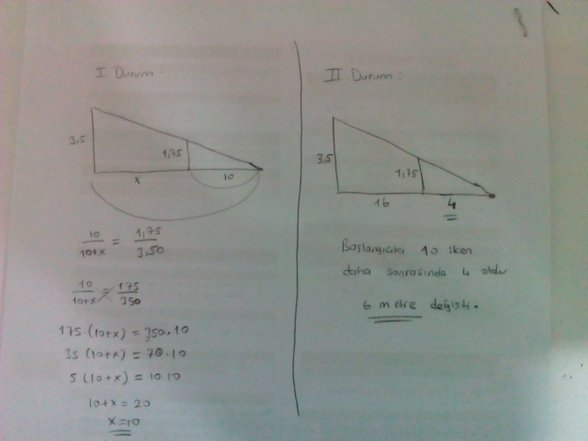 I. Durum:
3,5
1,75
x
10
10/10+x = 1,75/3,50
10/10+x = 175/350
175.(10+x) = 350.10
35(10+x) = 70.10
5(10+x) = 10.10
10+x = 20
x=10
II. Durum:
3,5
1,75
16
4
Başlangıçta 10 iken
daha sonrasında 4 oldu
6 metre değişti.